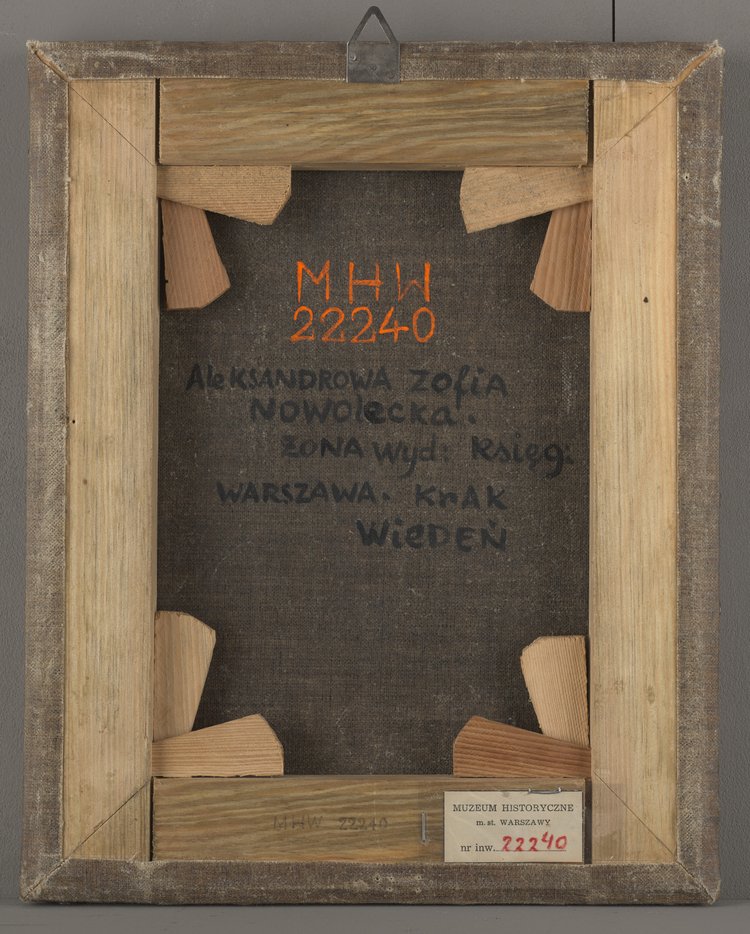 MHW
22240
AleKSANDROWA ZOfiA
NOWOlecKa.
ŻONA Wyd: Księg:
WARSZAWA. KrAK
WieDEŃ
MHW 22240
MUZEUM HISTORYCZNE
m. st. WARSZAWY
nr inw. 22240